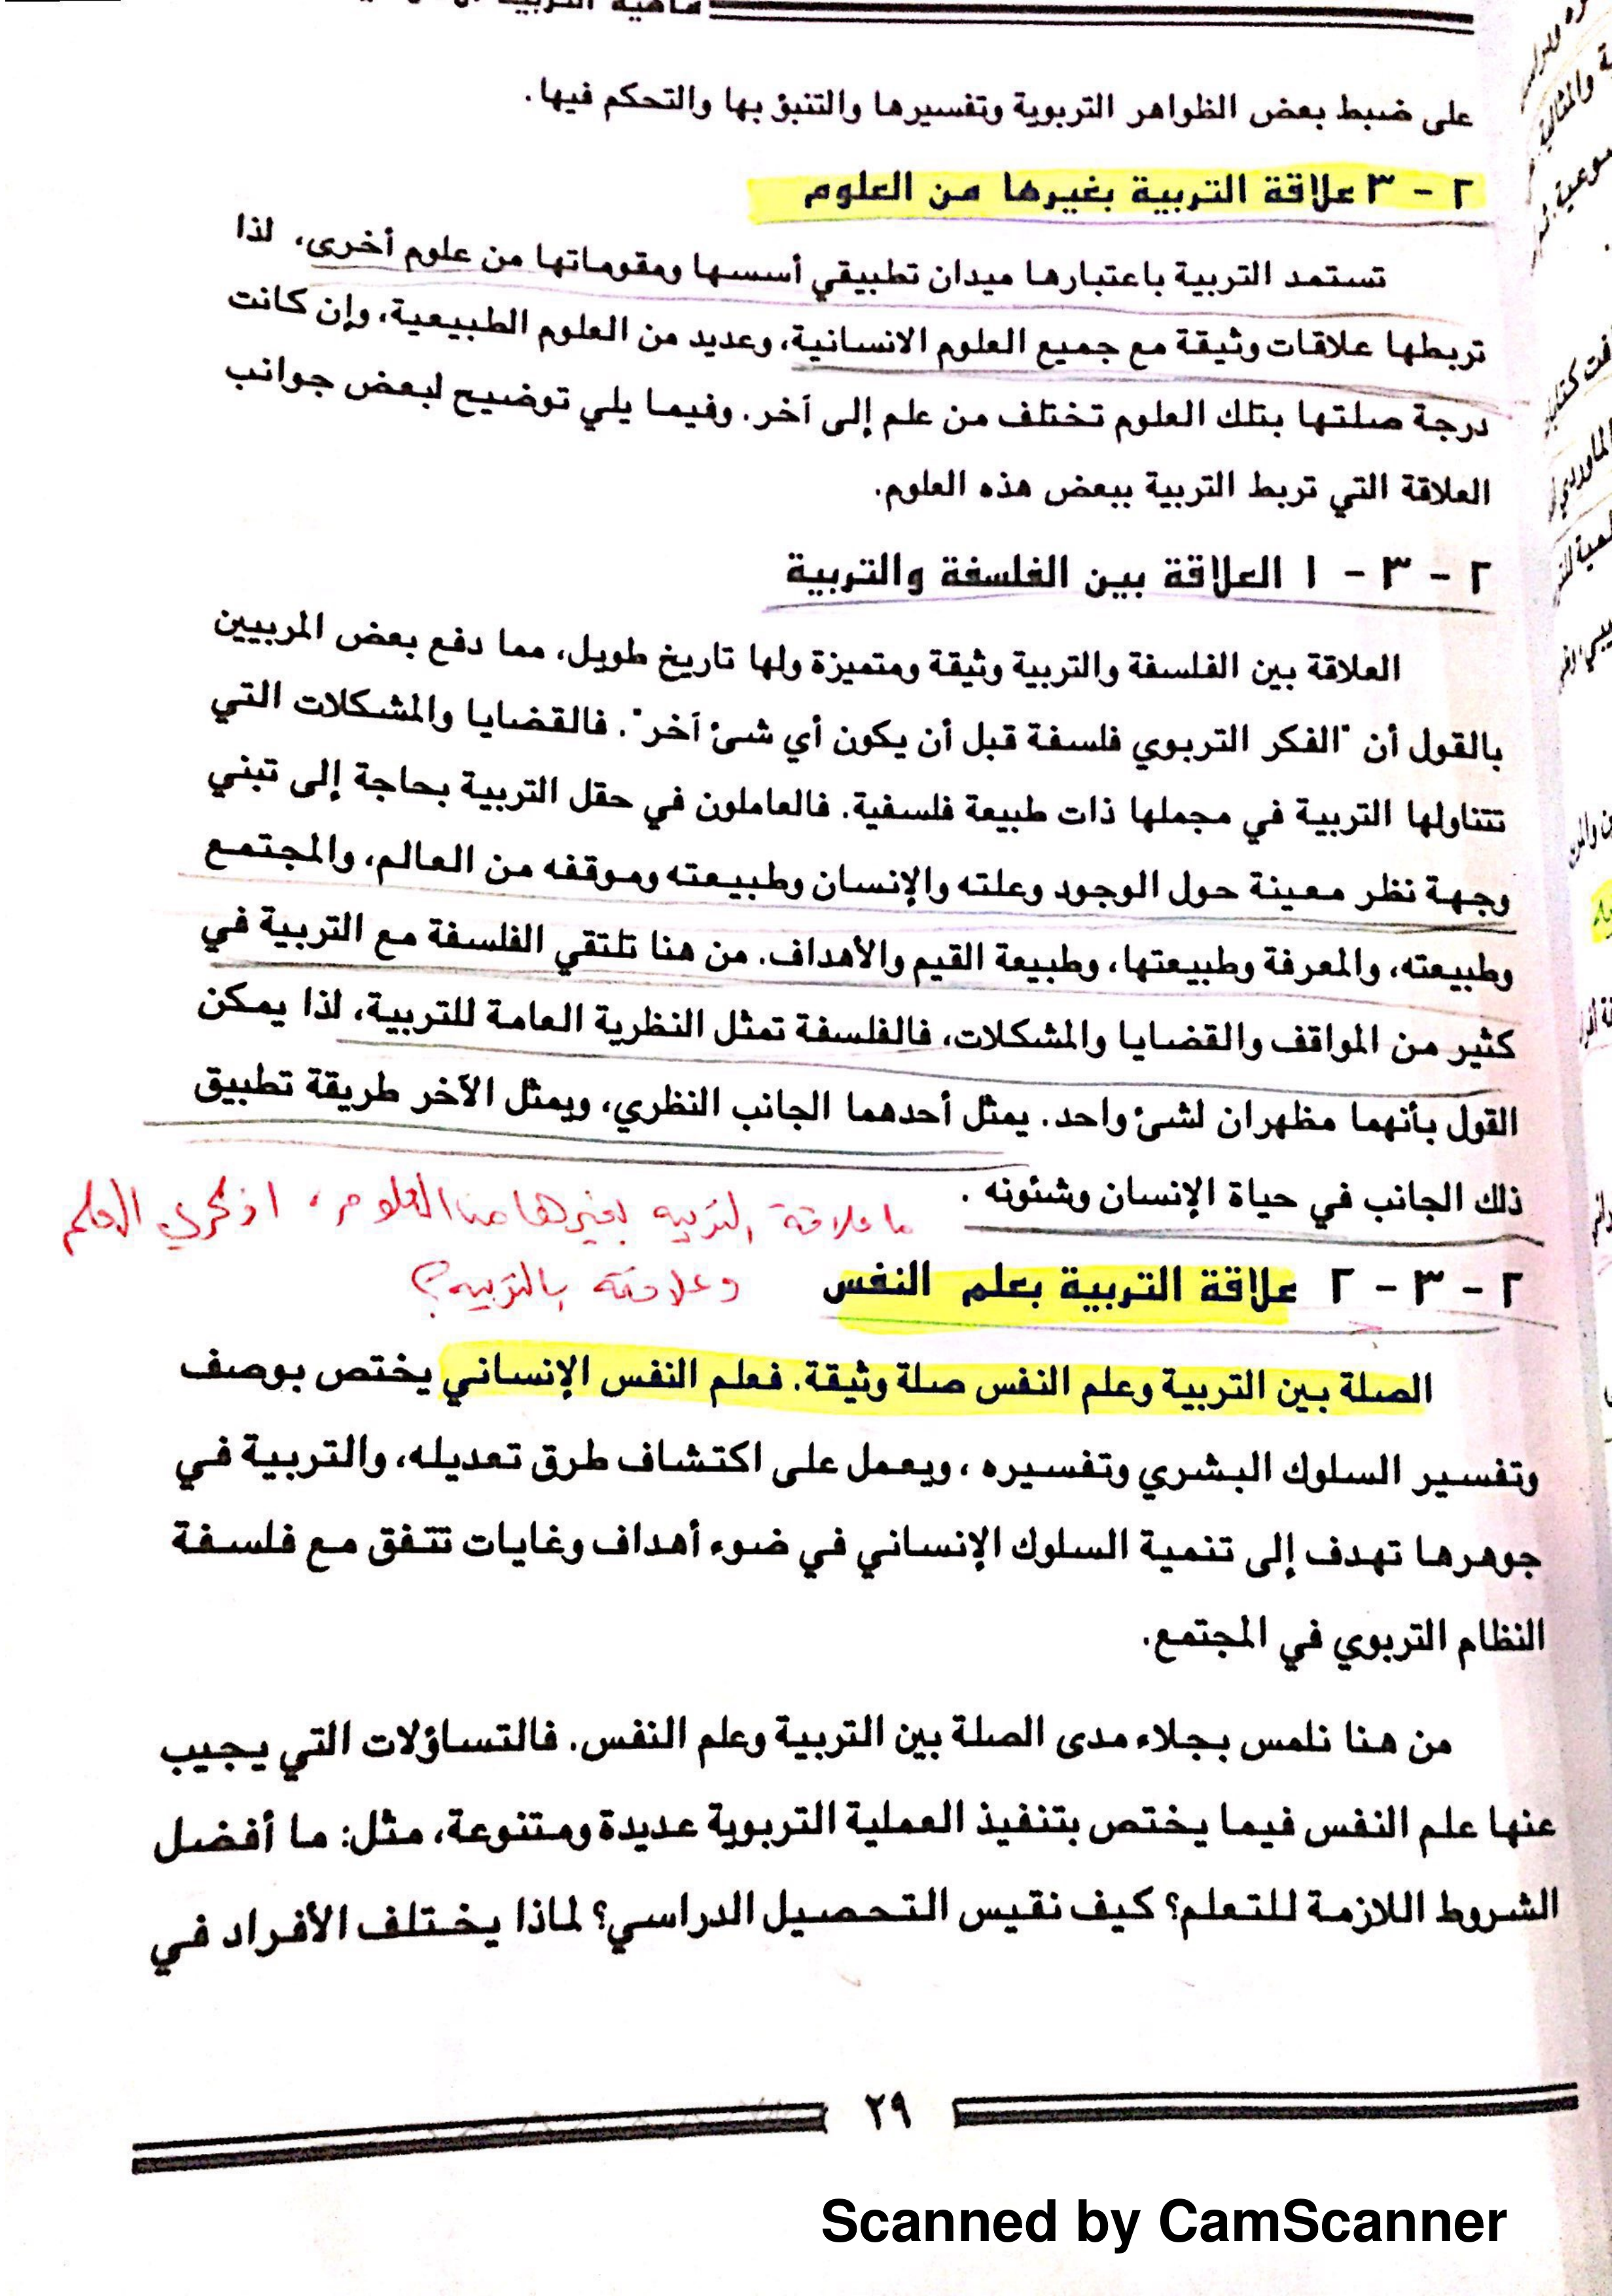 ماهية التربية
على ضبط بعض الظواهر التربوية وتفسيرها والتنبؤ بها والتحكم فيها.
٢ - ٣ علاقة التربية بغيرها من العلوم
تستمد التربية باعتبارها ميدان تطبيقي أسسها ومقوماتها من علوم أخرى، لذا
تربطها علاقات وثيقة مع جميع العلوم الانسانية، وعديد من العلوم الطبيعية، وإن كانت
درجة صلتها بتلك العلوم تختلف من علم إلى آخر. وفيما يلي توضيح لبعض جوانب
العلاقة التي تربط التربية ببعض هذه العلوم.
٢ - ٣ - ١ العلاقة بين الفلسفة والتربية
العلاقة بين الفلسفة والتربية وثيقة ومتميزة ولها تاريخ طويل، مما دفع بعض المربيين
بالقول أن "الفكر التربوي فلسفة قبل أن يكون أي شئ آخر". فالقضايا والمشكلات التي
تتناولها التربية في مجملها ذات طبيعة فلسفية. فالعاملون في حقل التربية بحاجة إلى تبني
وجهة نظر معينة حول الوجود وعلته والإنسان وطبيعته وموقفه من العالم، والمجتمع
وطبيعته، والمعرفة وطبيعتها، وطبيعة القيم والأهداف. من هنا تلتقي الفلسفة مع التربية في
كثير من المواقف والقضايا والمشكلات، فالفلسفة تمثل النظرية العامة للتربية، لذا يمكن
القول بأنهما مظهران لشئ واحد. يمثل أحدهما الجانب النظري، ويمثل الآخر طريقة تطبيق
ذلك الجانب في حياة الإنسان وشئونه .
ما علاقة التربيه بغيرها من العلوم، اذكري العلم
وعلاقته بالتربيه؟
٢ - ٣ - ٢ علاقة التربية بعلم النفس
الصلة بين التربية وعلم النفس صلة وثيقة. فعلم النفس الإنساني يختص بوصف
وتفسير السلوك البشري وتفسيره ، ويعمل على اكتشاف طرق تعديله، والتربية في
جوهرها تهدف إلى تنمية السلوك الإنساني في ضوء أهداف وغايات تتفق مع فلسفة
النظام التربوي في المجتمع.
من هنا نلمس بجلاء مدى الصلة بين التربية وعلم النفس. فالتساؤلات التي يجيب
عنها علم النفس فيما يختص بتنفيذ العملية التربوية عديدة ومتنوعة، مثل: ما أفضل
الشروط اللازمة للتعلم؟ كيف نقيس التحصيل الدراسي؟ لماذا يختلف الأفراد في
٢٩
Scanned by CamScanner